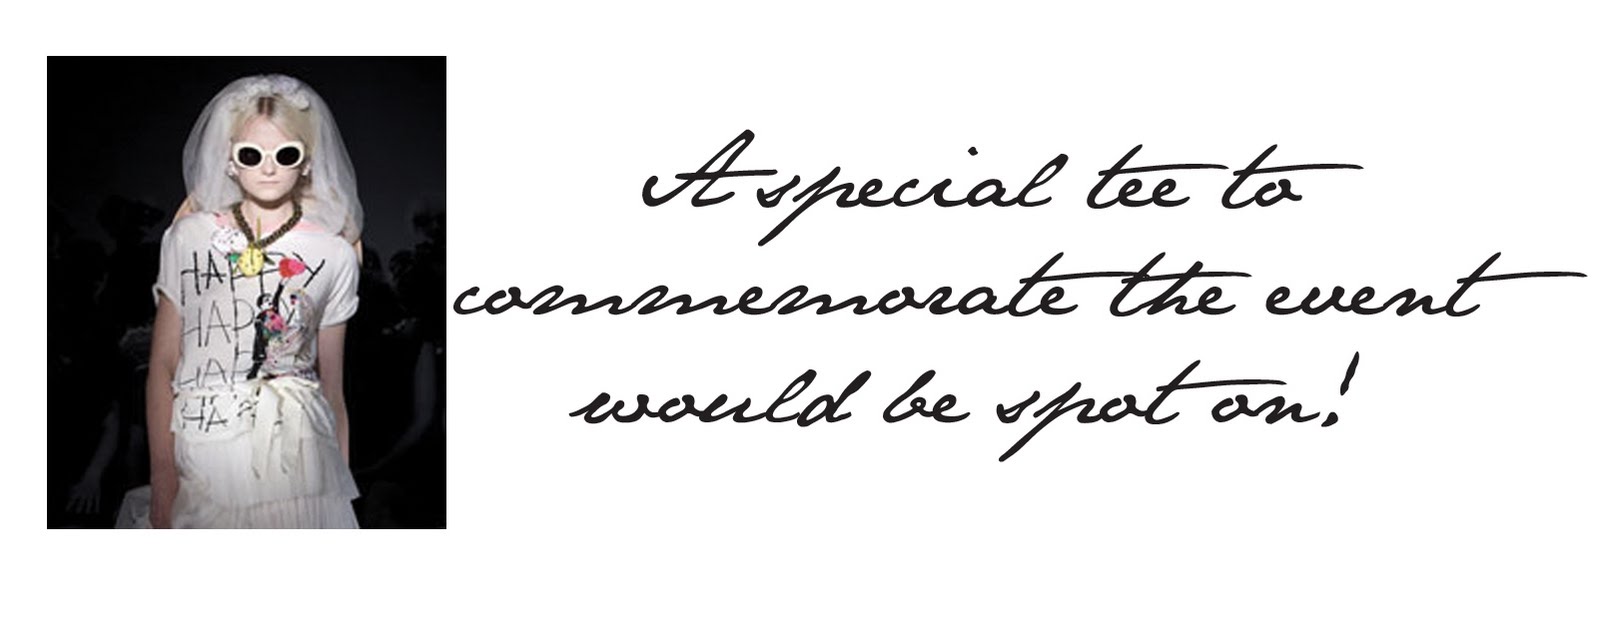 HAPPY
HAPPY
HAP
HA
A special tee to
commemorate the event
would be spot on!